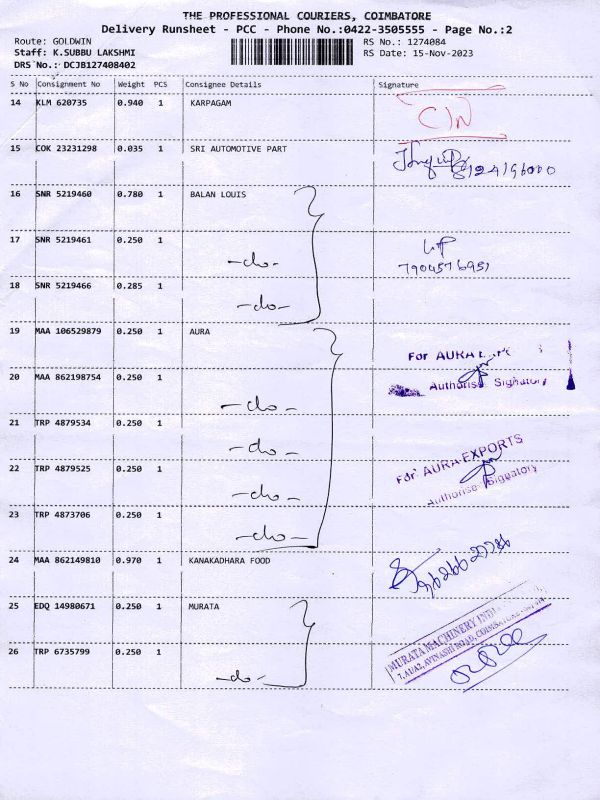 THE PROFESSIONAL COURIERS, COIMBATORE
Delivery Runsheet - PCC - Phone No.:0422-3505555 - Page No.:2
Route: GOLDWIN
Staff: K.SUBBU LAKSHMI
DRS No.: DCJB127408402
RS No.: 1274084
RS Date: 15-Nov-2023
S No Consignment No Weight PCS Consignee Details Signature
14 KLM 620735 0.940 1 KARPAGAM
15 COK 23231298 0.035 1 SRI AUTOMOTIVE PART
16 SNR 5219460 0.780 1 BALAN LOUIS
17 SNR 5219461 0.250 1 -do-
7904576951
18 SNR 5219466 0.285 1 -do-
19 MAA 106529879 0.250 1 AURA
For AURA
20 MAA 862198754 0.250 1 -do-
Authorise Signatory
21 TRP 4879534 0.250 1 -do-
For AURA EXPORTS
22 TRP 4879525 0.250 1 -do-
Authorise Signatory
23 TRP 4873706 0.250 1 -do-
24 MAA 862149810 0.970 1 KANAKADHARA FOOD
25 EDQ 14980671 0.250 1 MURATA
MURATA MACHINERY
AVINASHI ROAD,
26 TRP 6735799 0.250 1 -do-